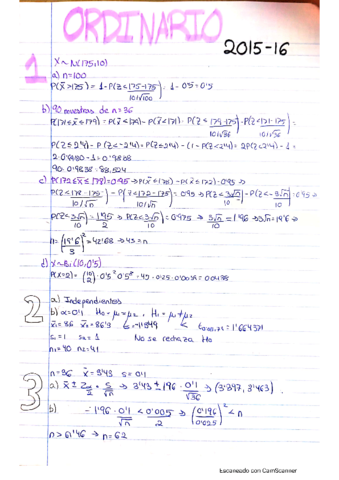 ORDINARIO
2015-16
1
X ~ N(175,10)
a) n=100
P(x̄>175) = 1-P(Z≤ 175-175 / 10/√100 ) = 1-0'5=0'5
b) 90 muestras de n=36
P(171≤x̄≤179) = P(x̄≤179)-P(x̄≤171) = P(Z≤ 179-175 / 10/√36 )-P(Z≤ 171-175 / 10/√36 ) =
P(Z≤2'4)-P(Z<-2'4)=P(Z≤2'4)-(1-P(Z<2'4))=2P(Z≤2'4)-1=
c) P(172≤x̄≤178)=0'95→P(x̄≤178)-P(x̄≤172)=0'95→
P(Z≤ 178-175 / 10/√n )-P(Z≤ 172-175 / 10/√n )=0'95→P(Z< 3√n / 10 )-P(Z<-3√n / 10 )=0'95→
P(Z≤ 3√n / 10 )= 1'95 / 2 →P(Z≤ 3√n / 10 )=0'975→ 3√n / 10 =1'96→3√n=19'6→
n=( 19'6 / 3 )²=42'68→43=n
d) X~Bi(10,0'5)
2
a) Independientes
b) α=0'1 H₀=μ₁=μ₂, H₁=μ₁≠μ₂
No se rechaza H₀
n₁=40 n₂=41
3
n=36 x̄=3'43 s=0'1
a) x̄ ± Zα/2 · s/√n → 3'43 ± 1'96 · 0'1/√36 → (3'397, 3'463)
b) 1'96 · 0'1 / √n < 0'005 → ( 0'196 / 0'025 )² < n
n>61'46→n=62
Escaneado con CamScanner